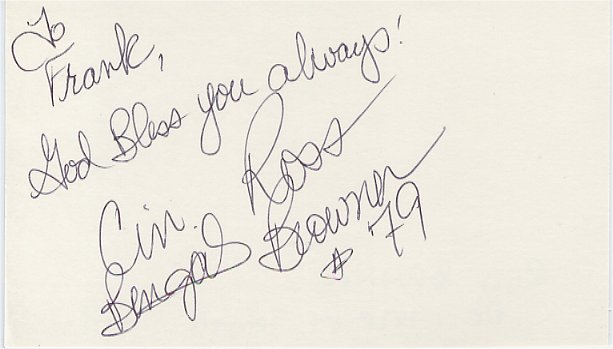 To
Frank,
God Bless you always!
Ross
Browner
# 79
Cin.
Bengals